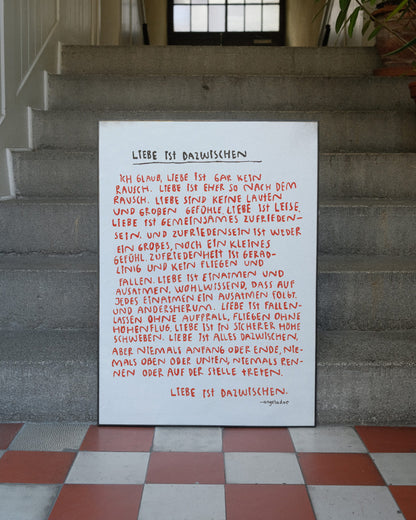 LIEBE IST DAZWISCHEN
ICH GLAUB, LIEBE IST GAR KEIN
RAUSCH. LIEBE IST EHER SO NACH DEM
RAUSCH. LIEBE SIND KEINE LAUTEN
UND GROßEN GEFÜHLE. LIEBE IST LEISE.
LIEBE IST GEMEINSAMES ZUFRIEDEN-
SEIN, UND ZUFRIEDENSEIN IST WEDER
EIN GROßES, NOCH EIN KLEINES
GEFÜHL. ZUFRIEDENHEIT IST GERAD-
LINIG UND KEIN FLIEGEN UND
FALLEN. LIEBE IST EINATMEN UND
AUSATMEN, WOHLWISSEND, DASS AUF
JEDES EINATMEN EIN AUSATMEN FOLGT.
UND ANDERSHERUM. LIEBE IST FALLEN-
LASSEN OHNE AUFPRALL, FLIEGEN OHNE
HÖHENFLUG. LIEBE IST IN SICHERER HÖHE
SCHWEBEN. LIEBE IST ALLES DAZWISCHEN,
ABER NIEMALS ANFANG ODER ENDE, NIE-
MALS OBEN ODER UNTEN, NIEMALS REN-
NEN ODER AUF DER STELLE TRETEN.
LIEBE IST DAZWISCHEN.